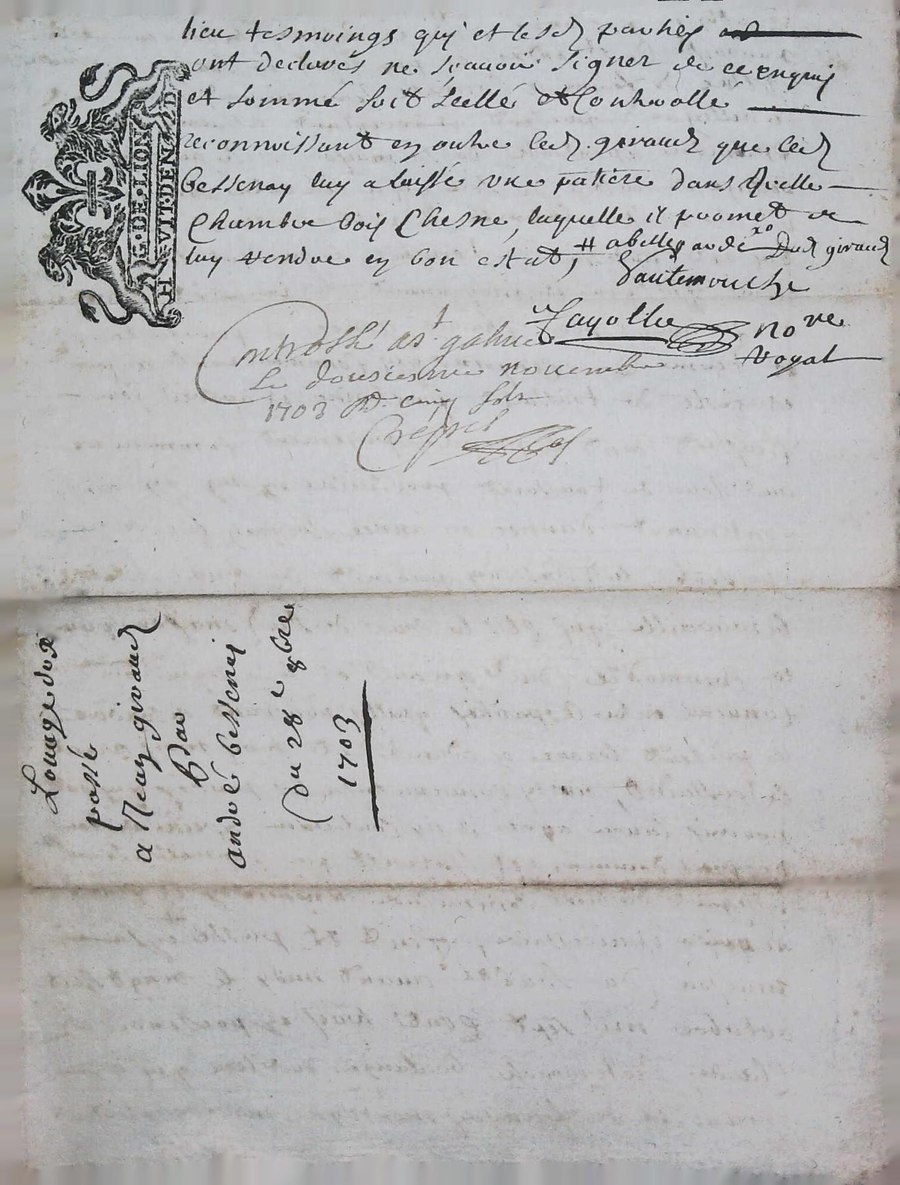 lieu tesmoings quj et lesd parties ont
ont declarés ne scavoir signer de ce enquis
et sommé soit scellé et Controllé
reconnoissant en outre led giraud que led
bessenay luy a laissé une patiere dans Icelle
Chambre bois Chesne, laquelle il promet de
luy rendre en bon estat,
G. DE LION
H VIT. DEN
Fayolle no re
Royal
Controllé a st
Le dousiesme novembre
1703 Rd cinq sols
Louage
passé
a giraud
Par
andré bessenay
du 28e 8bre
1703